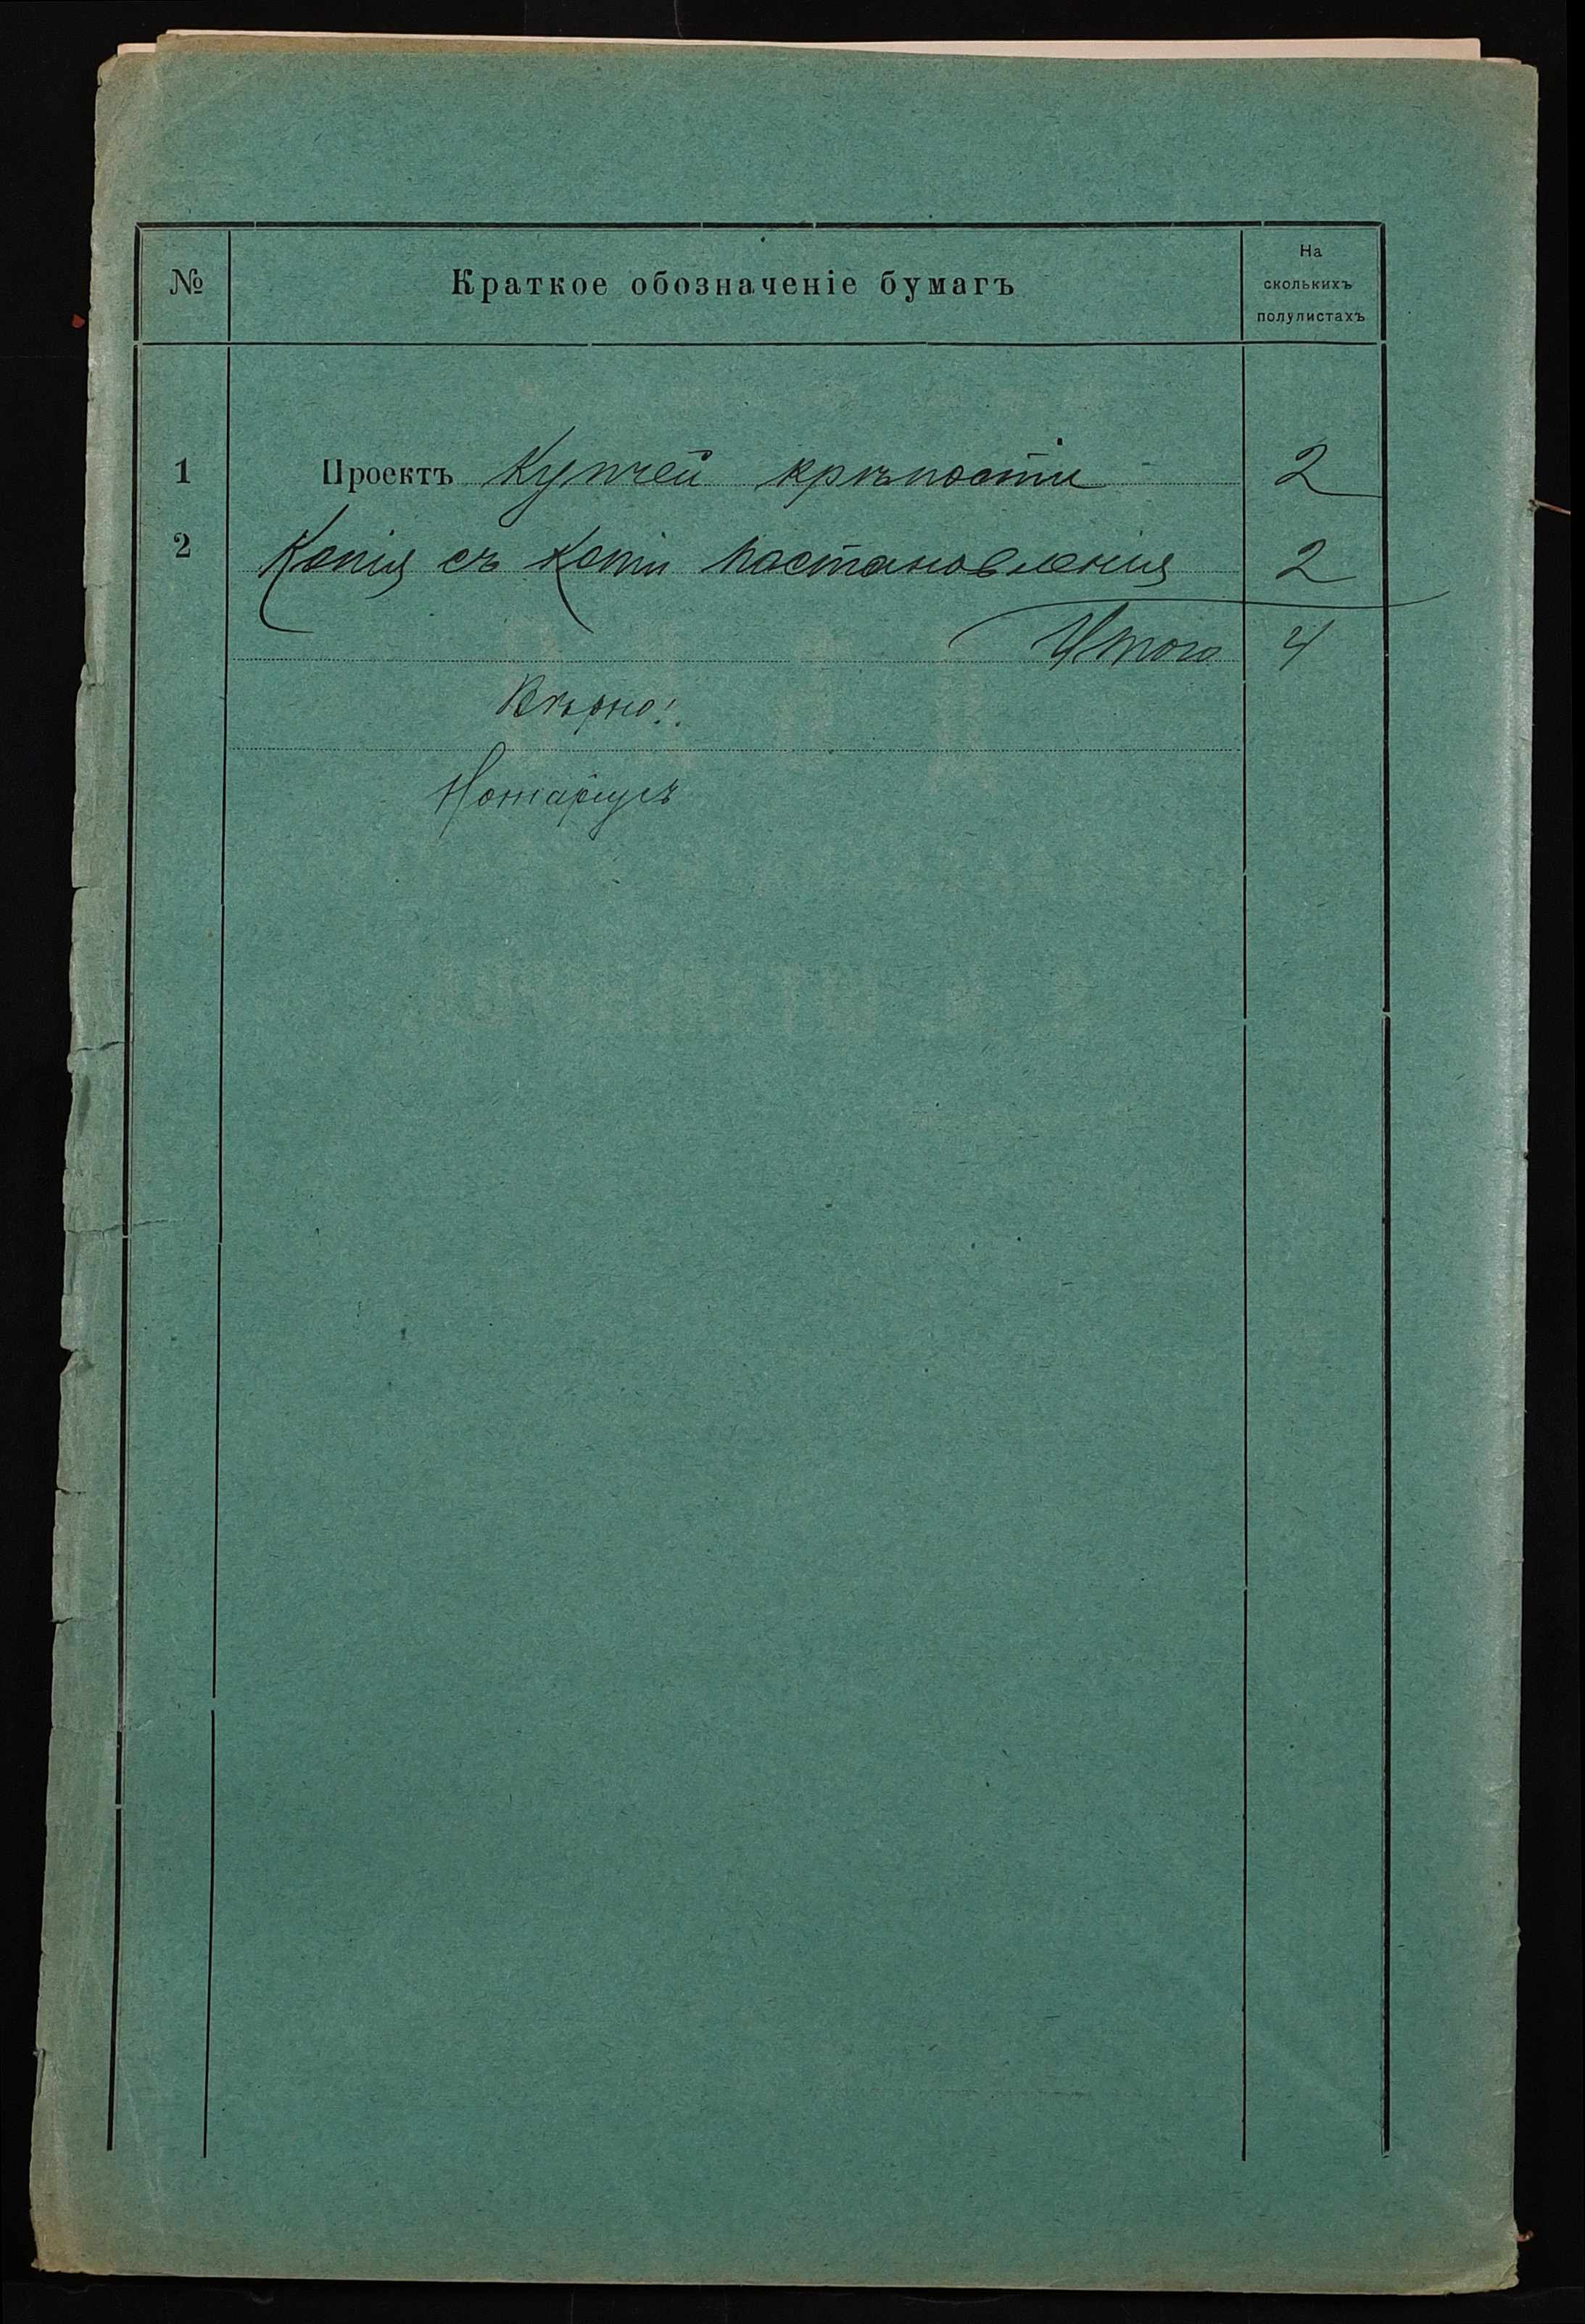 № Краткое обозначеніе бумагъ На
сколькихъ
полулистахъ
1 Проектъ Купчей крѣпости 2
2 Копія съ копіи постановленія 2
Итого 4
Вѣрно!
Нотаріусъ